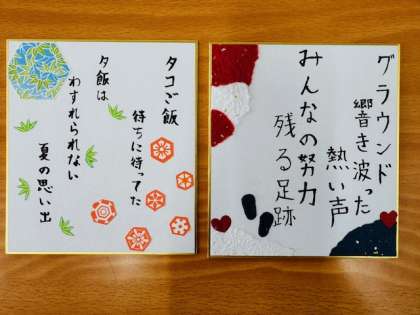 グラウンド
響き波った
熱い声
みんなの努力
残る足跡
タコご飯
待ちに待ってた
夕飯は
わすれられない
夏の思い出